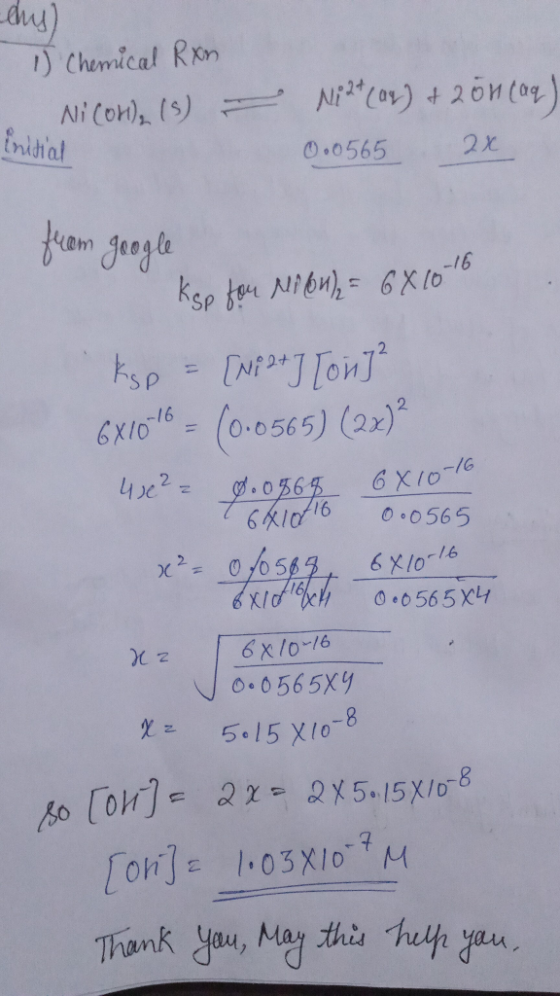 1) Chemical Rxn
Ni(OH)₂(s) ⇌ Ni²⁺(aq) + 2ŌH(aq)
initial 0.0565 2x
from google
Ksp for Ni(OH)₂ = 6X10⁻¹⁶
Ksp = [Ni²⁺][ŌH]²
6X10⁻¹⁶ = (0.0565) (2x)²
4x² = 6X10⁻¹⁶ / 0.0565
x² = 6X10⁻¹⁶ / 0.0565X4
x = √(6X10⁻¹⁶ / 0.0565X4)
x = 5.15X10⁻⁸
so [OH⁻] = 2x = 2X5.15X10⁻⁸
[OH⁻] = 1.03X10⁻⁷ M
Thank you, May this help you.